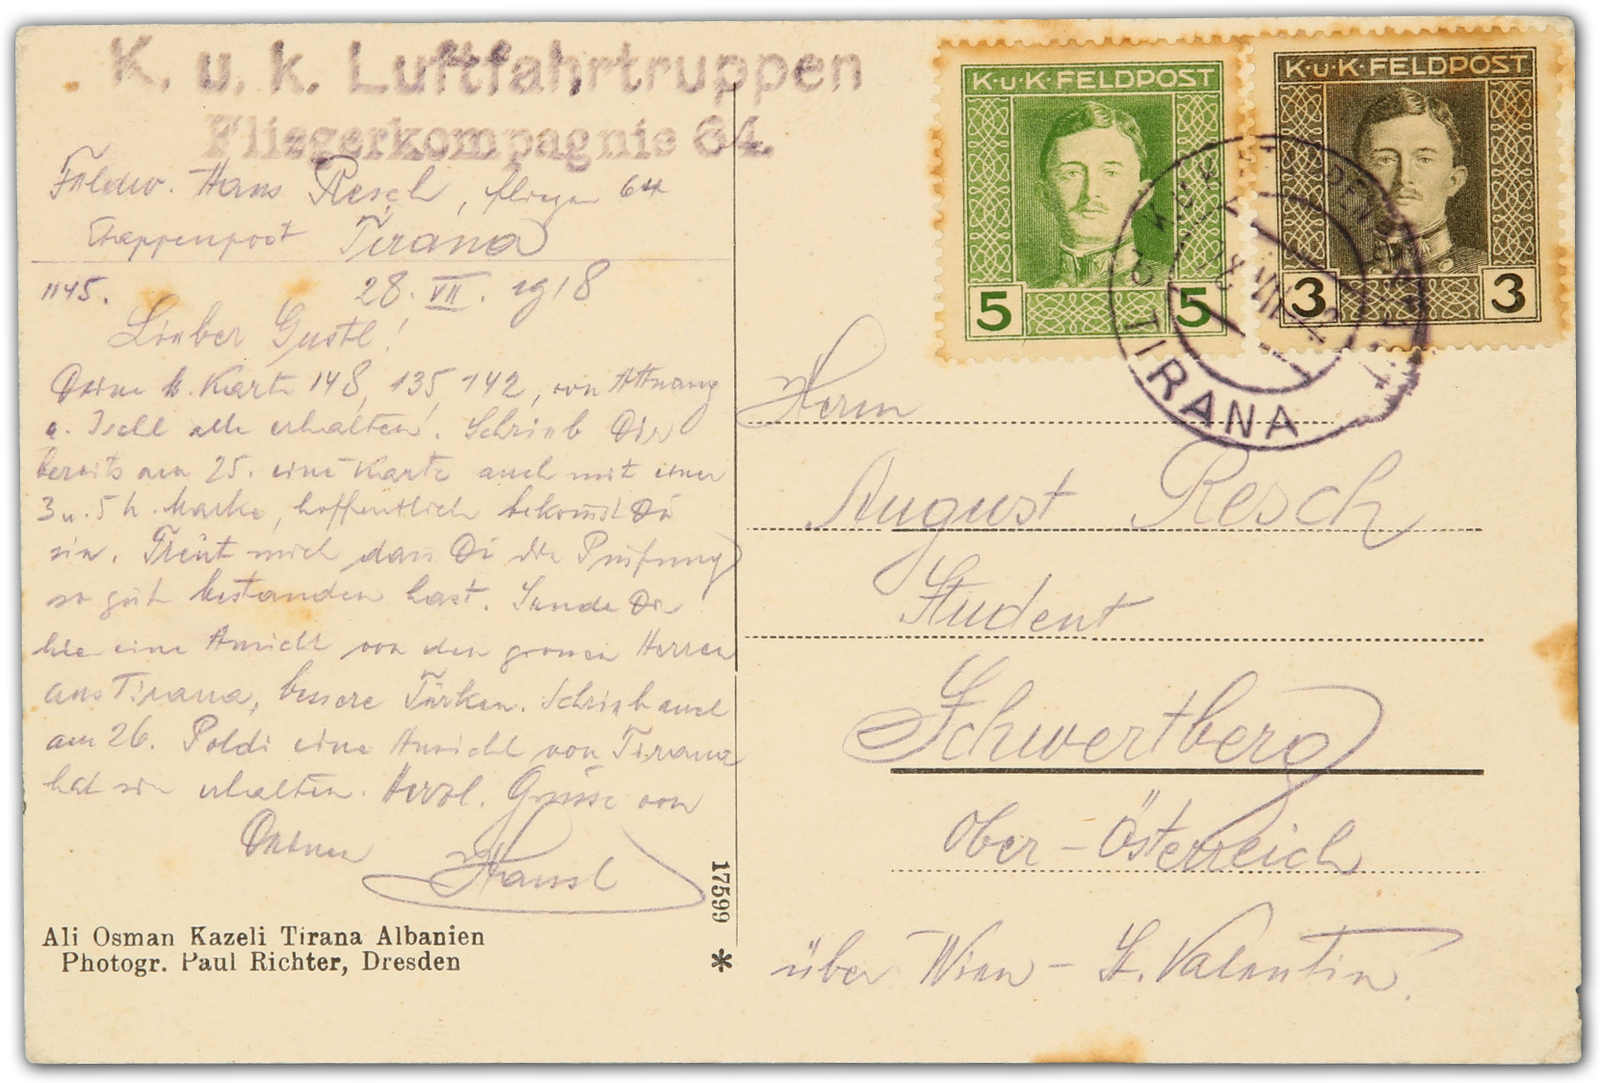 K. u. k. Luftfahrtruppen
Fliegerkompagnie 64.
Feldw. Hans Resch, flieger 64
Etappenpost Tirana
1145. 28. VII. 1918
Lieber Gustl!
Deine Karte 148, 135, 142, von Attnang
u. Ischl alle erhalten. Schrieb Dir
bereits am 25. eine Karte auch mit einer
3 u. 5 h. Marke, hoffentlich bekom̄st Du
sie. Freut mich daß Du die Prüfung
so gut bestanden hast. Sende Dir
hier eine Ansicht von den grossen Herren
aus Tirana, bessere Türken. Schrieb auch
am 26. Poldi eine Ansicht von Tirana
hat sie erhalten. Herzl. Grüsse von
Deinem Hansl
Ali Osman Kazeli Tirana Albanien
Photogr. Paul Richter, Dresden
17599 *
K·u·K·FELDPOST
5 5
K·u·K·FELDPOST
3 3
TIRANA
Herrn
August Resch
Student
Schwertberg
Ober-Österreich
über Wien - St. Valentin.